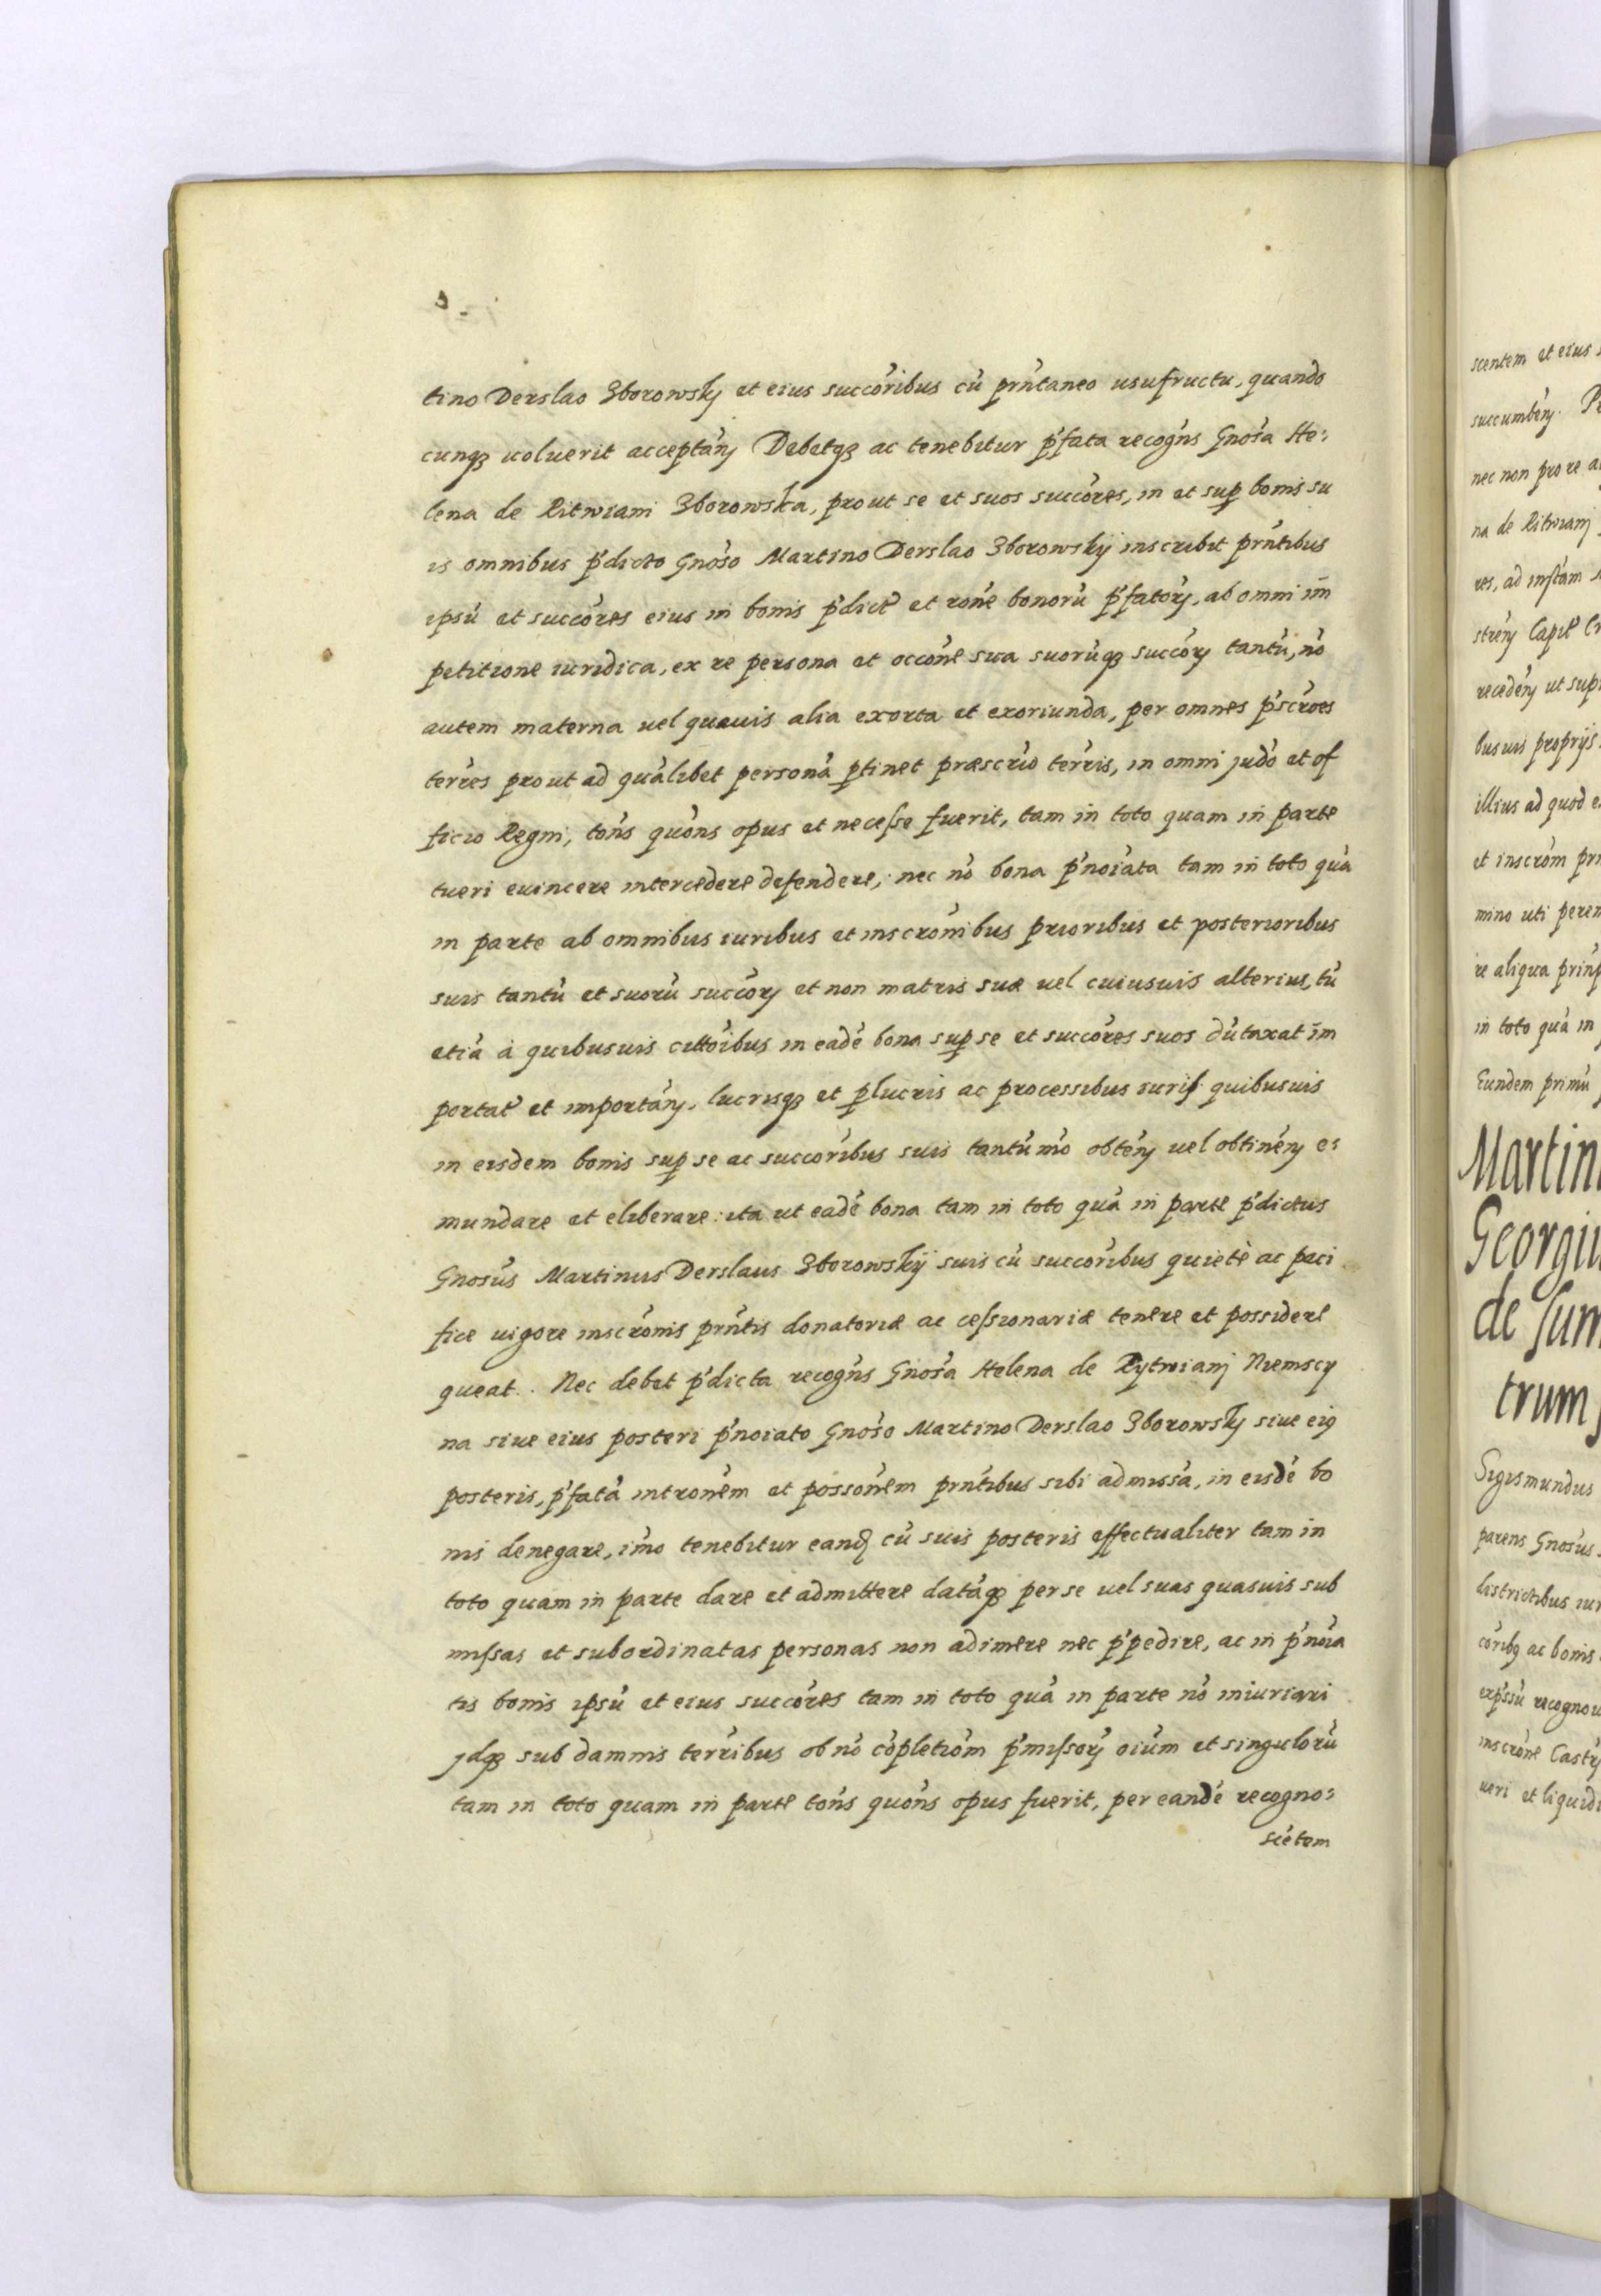 tino Derslao Zborowskÿ et eius succo͂ribus cu͂ prn͂taneo usufructu, quando
cunqȝ uoluerit acceptan͂ꝝ Debetqȝ ac tenebitur p͂fata recogn͂s Gnos͂a He:
lena de Ritwiani Zborowska, prout se et suos succo͂res, in et suꝑ bonis su
is omnibus p͂dicto Gnos͂o Martino Derslao Zborowskÿ inscribit prn͂tibus
ipsu͂ et succo͂res eius in bonis p͂dict͂ et ron͂e bonoru͂ p͂fatoꝝ, ab omni im͂
petitione iuridica, ex re persona et occon͂e sua suoru͂qȝ succo͂ꝝ tantu͂, no͂
autem materna uel quauis alia exorta et exoriunda, per omnes p͂scr͂oes
terr͂es prout ad qua͂libet persona͂ ꝑtinet præscr͂io terr͂is, in omni jud͂o et of
ficio Regni, ton͂s quon͂s opus et necesse fuerit, tam in toto quam in parte
tueri euincere intercedere defendere, nec no͂ bona p͂noia͂ta tam in toto qua͂
in parte ab omnibus iuribus et inscron͂ibus prioribus et posterioribus
suis tantu͂ et suoru͂ succo͂ꝝ et non matris suæ uel cuiusuis alterius, tu͂
etia͂ à quibusuis citto͂ibus in eade͂ bona suꝑ se et succo͂res suos du͂taxat im͂
portat͂ et importan͂ꝝ, lucrisqȝ et ꝑlucris ac processibus iuris quibusuis
in eisdem bonis suꝑ se ac succo͂ribus suis tantu͂mo͂ obten͂ꝝ uel obtinen͂ꝝ e:
mundare et eliberare: ita ut eade͂ bona tam in toto qua͂ in parte p͂dictus
Gnosu͂s Martinus Derslaus Zborowskÿ suis cu͂ succo͂ribus quietè ac paci
fice uigore inscron͂is prn͂tis donatoriæ ac cessionariæ tenere et possidere
queat. Nec debet p͂dicta recogn͂s Gnos͂a Helena de Rytwianj Niemscy
na siue eius posteri p͂noiato Gnos͂o Martino Derslao Zborowskÿ siue eiꝰ
posteris, p͂fata͂ intron͂em et posson͂em prn͂tibus sibi admissa͂, in eisde͂ bo
nis denegare, im͂o tenebitur eand͂ cu͂ suis posteris effectualiter tam in
toto quam in parte dare et admittere data͂qȝ per se uel suas quasuis sub
missas et subordinatas personas non adimere nec p͂pedire, ac in p͂noia͂
tis bonis ipsu͂ et eius succo͂res tam in toto qua͂ in parte no͂ iniuriari
jdqȝ sub damnis terr͂ibus ob no͂ co͂pletio͂m p͂missoꝝ oiu͂m et singuloru͂
tam in toto quam in parte ton͂s quon͂s opus fuerit, per eande͂ recogno:
sce͂tem
scentem et eius
succumben͂ꝝ.
nec non pro re
na de Ritwianj
res, ad insta͂m
receden͂ꝝ ut
busuis proprijs
illius ad quod
et inscro͂m
mino uti
re aliqua
in toto qua͂ in
Eundem primu͂
Georgiu
de
trum
Sigismundus
parens Gnosu͂s
districtibus
ac bonis
inscron͂e
ueri et